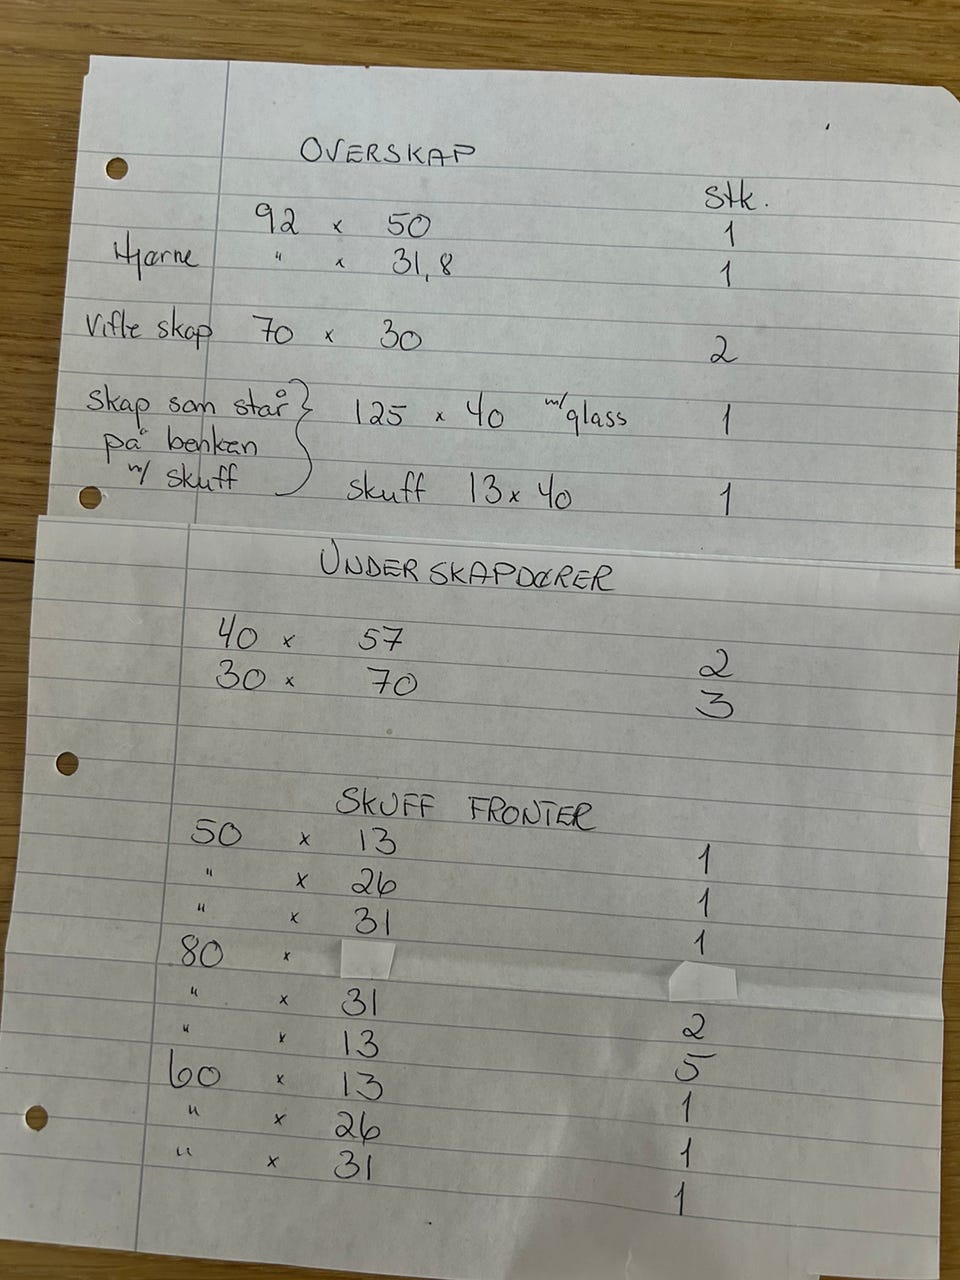 OVERSKAP
Stk.
92 x 50 1
Hjørne " x 31,8 1
Vifte skap 70 x 30 2
Skap som står } 125 x 40 m/glass 1
på benken
m/ skuff skuff 13 x 40 1
UNDERSKAPDØRER
40 x 57 2
30 x 70 3
SKUFF FRONTER
50 x 13 1
" x 26 1
" x 31 1
80 x
" x 31 2
" x 13 5
60 x 13 1
" x 26 1
" x 31 1